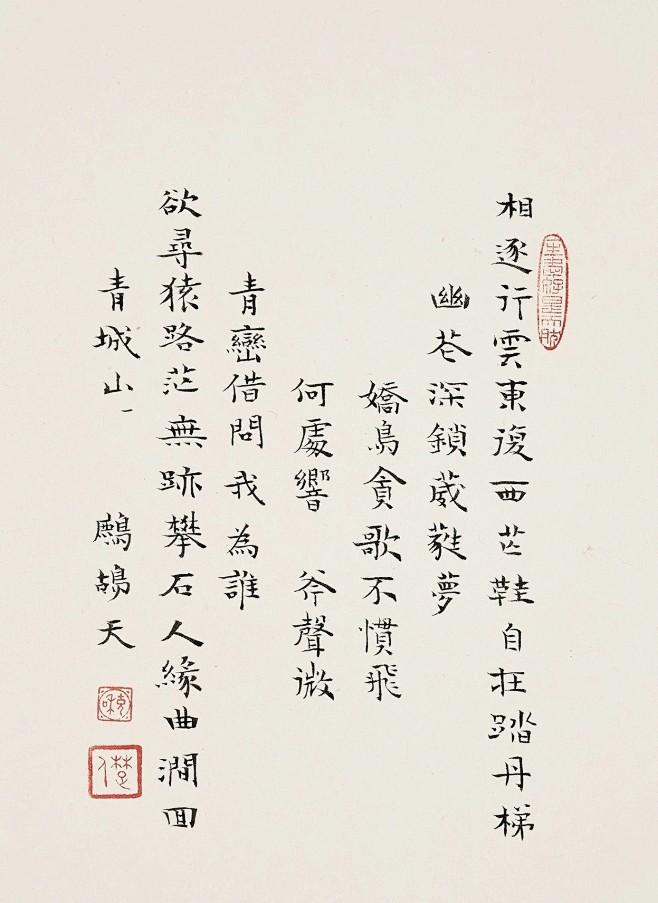 相逐行雲東復西芒鞋自在踏丹梯
幽花深鎖葳蕤夢
嬌鳥貪歌不慣飛
何處響 斧聲微
青巒借問我為誰
欲尋猿路茫無跡攀石人緣曲澗回
青城山 鷓鴣天